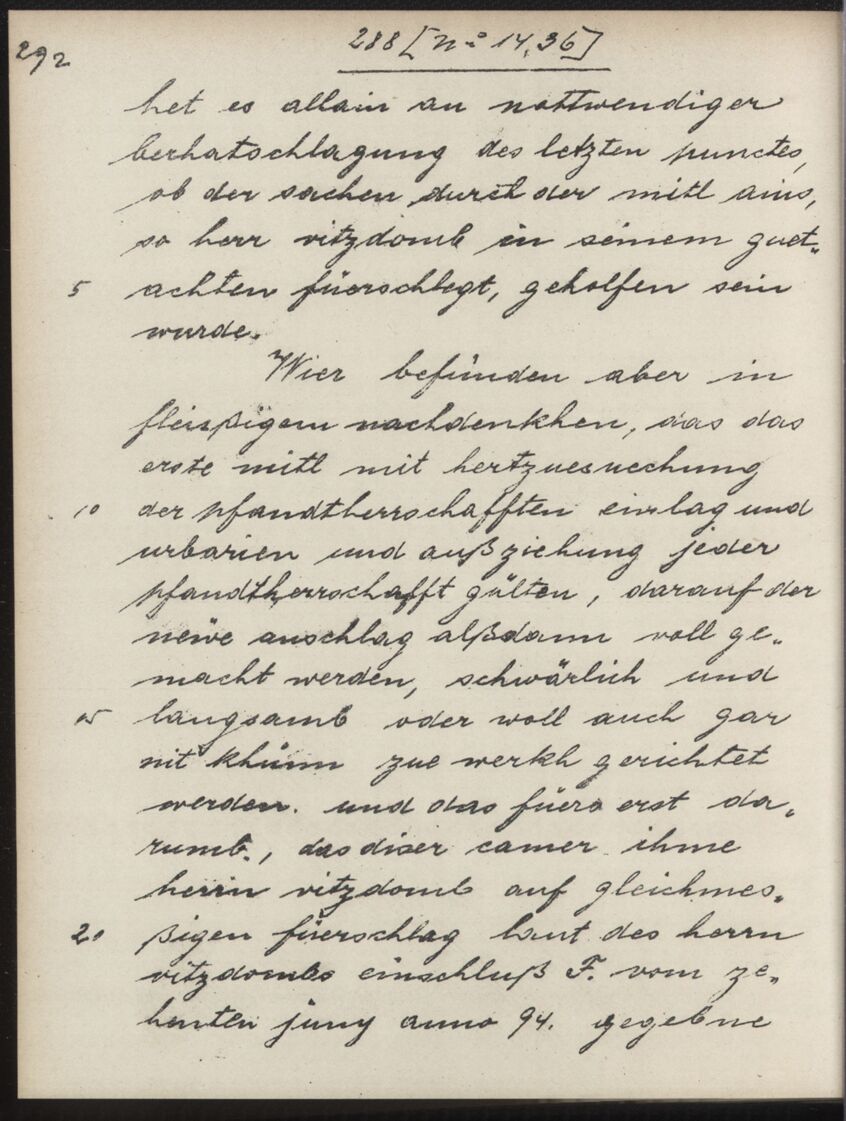 292
288 [No 14, 36]
het es allain an nottwendiger
berhatschlagung des letzten punctes,
ob der sachen durch der mitl ains,
so herr vitzdomb in seinem guet„
5 achten füerschlegt, geholfen sein
wurde.
Wier befünden aber in
fleisßigem nachdenkhen, das das
erste mitl mit hertzuesuechung
10 der pfandtherrschafften einlag und
urbarien und außziehung jeder
pfandtherrschafft gülten, darauf der
neüe anschlag alßdann voll ge„
macht werden, schwärlich und
15 langsamb oder woll auch gar
nit khünn zue werkh gerichtet
werden. und das füers erst da„
rumb., das diser camer ihme
herrn vitzdomb auf gleichmes„
20 ßigen füerschlag laut des herrn
vitzdombs einschluß F. vom ze„
henten juny anno 94. gegebne